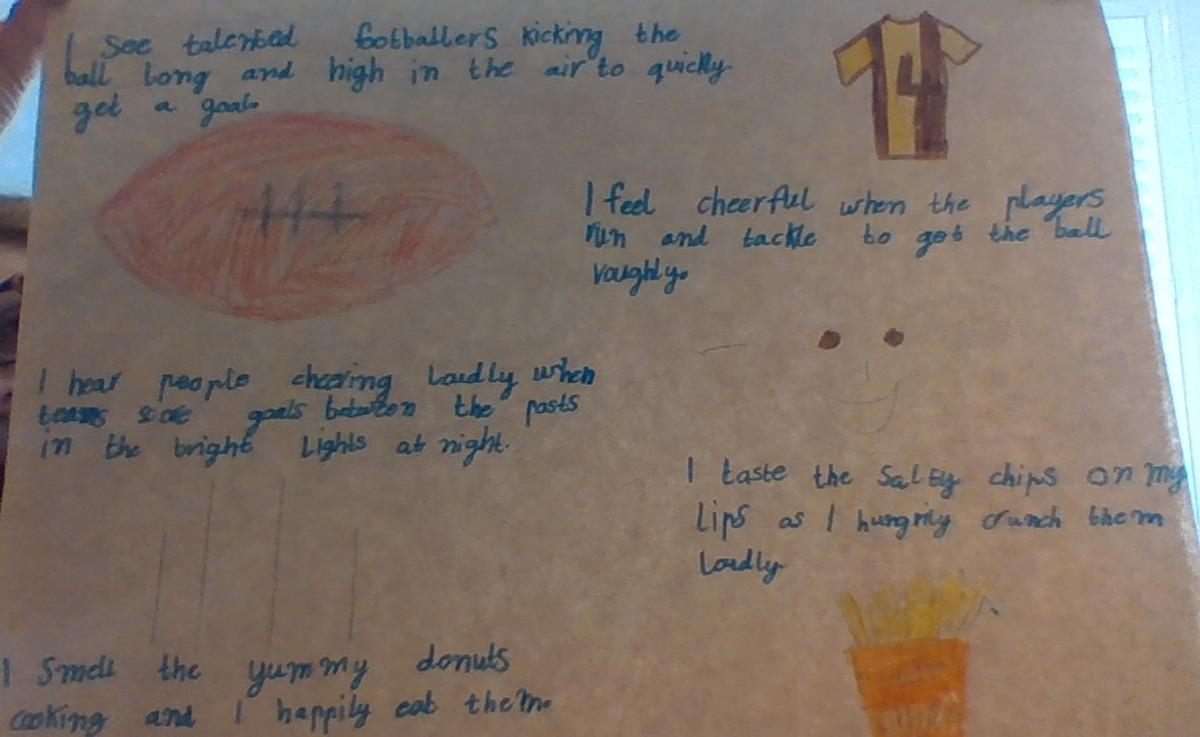 I see talented footballers kicking the
ball long and high in the air to quickly
get a goal.
4
I feel cheerful when the players
run and tackle to get the ball
roughly.
I hear people cheering loudly when
teams score goals between the posts
in the bright lights at night.
I taste the salty chips on my
lips as I hungrily crunch them
loudly.
I smell the yummy donuts
cooking and I happily eat them.